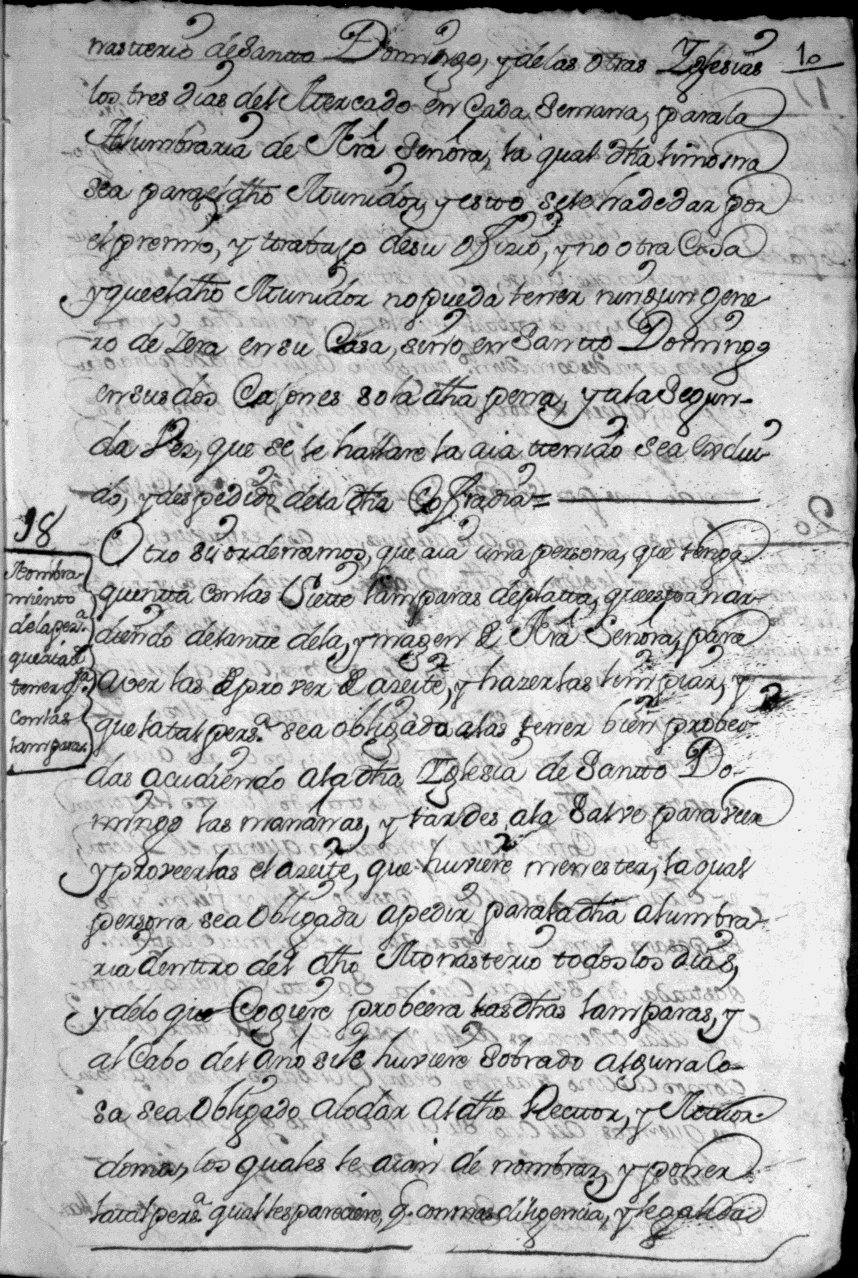 10
nasterio de Santto Domingo, y de las otras Yglesias
los tres dias del Mercado en Cada Semana, para la
Alumbraria de Nrâ Señora, la qual dha limosna
sea para el dho Munidor, y esto se le ha de dar por
el premio, y travajo de su ofizio, y no otra Cosa
y que el dho Munidor no pueda tener ningun gene
ro de Zera en su Casa, sino en Santto Domingo
en sus dos Cajones so la dha pena, y a la Segun-
da Vez, que se le hallare la aia tenido sea Exclui-
do, y despedido de la dha Cofradia =
18
Nombra-
miento
de la pers.ª
que ha de
tener q.ta
con las
lamparas
Otro si ordenamos, que aia una persona, que tenga
quentta con las Siette lamparas de platta, que estan ar-
diendo delante de la, ymagen de Nrâ Señora, para
aver las de prover de azeite, y hazerlas limpiar, y
que la tal pers.ª sea obligada a las tener bien probei-
das acudiendo a la dha Yglesia de Santto Do-
mingo las mañanas, y tardes, a la Salve para ver
y proveerlas el azeite, que huviere menester, la qual
persona sea obligada a pedir para la dha alumbra-
ria dentro del dho Monasterio todos los dias,
y delo que Cogiere probeera las dhas lamparas, y
al Cabo del Año si le huviere sobrado alguna Co-
sa sea obligado a lo dar al dho Rector, y Maior-
domos, los quales le aian de nombrar, y poner
la tal pers.ª qual les pareciere, q. con mas diligencia, y legalidad
20